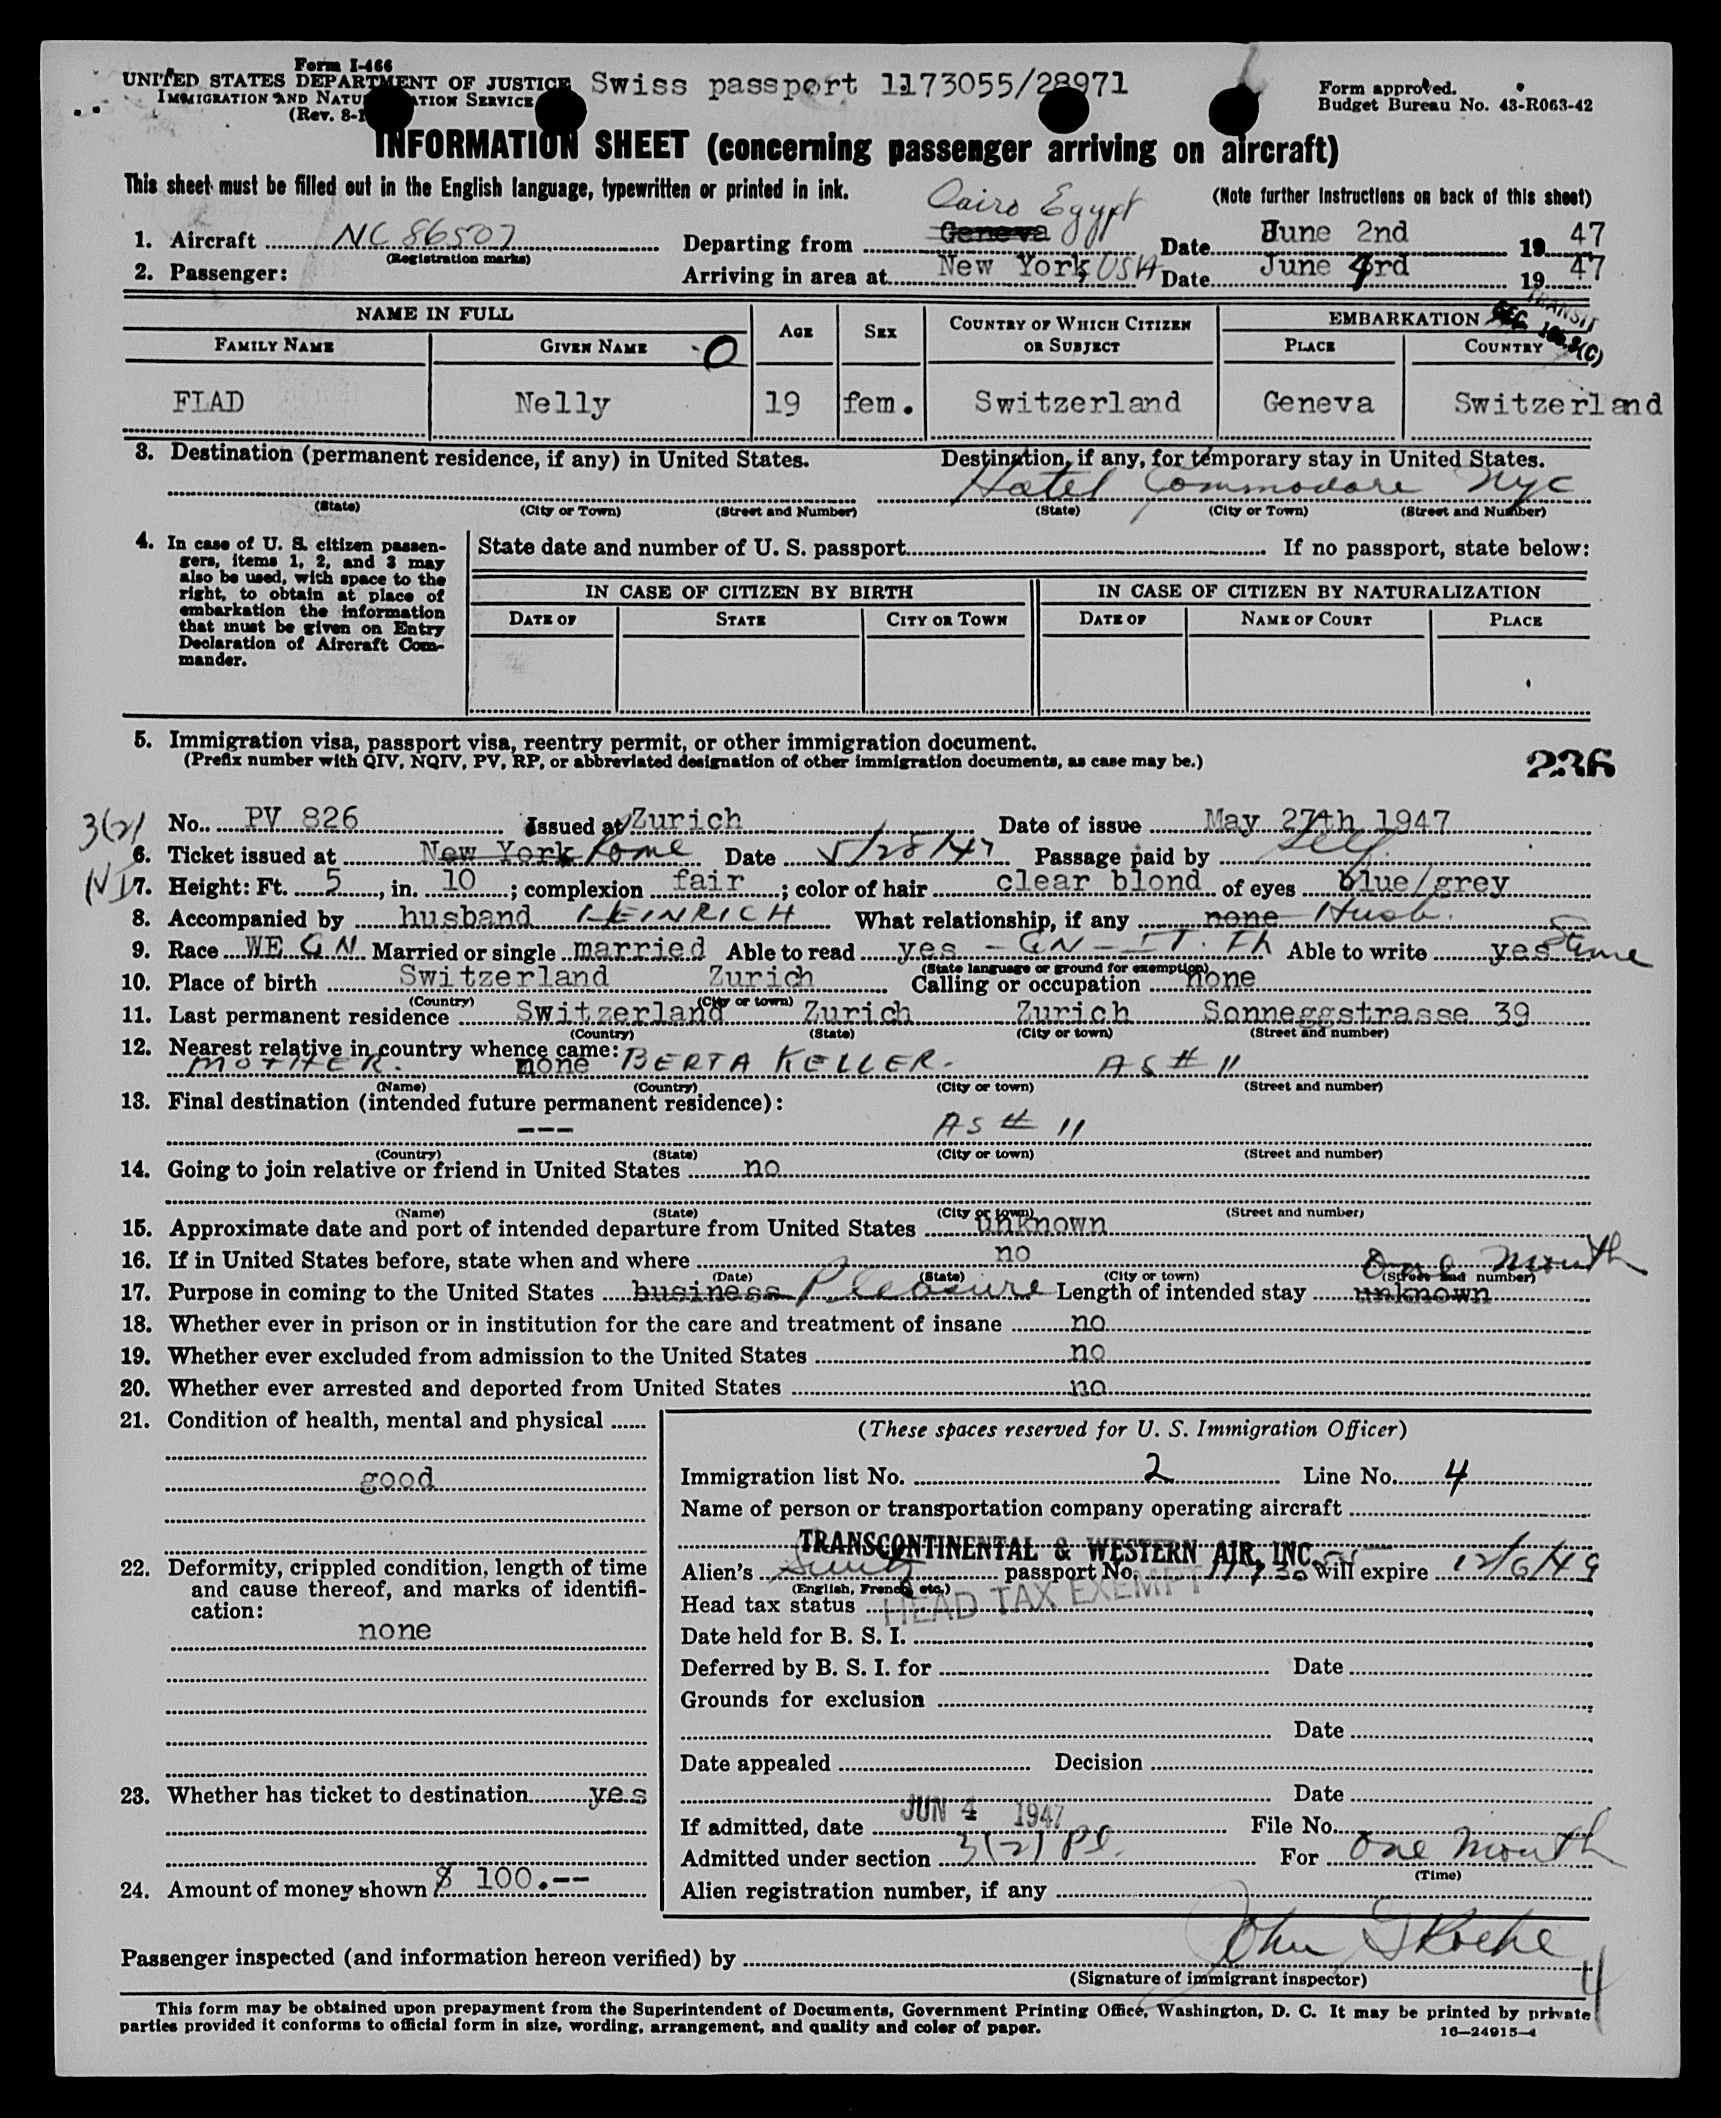 Form I-466
UNITED STATES DEPARTMENT OF JUSTICE Swiss passport 1173055/28971 Form approved.
IMMIGRATION AND NATU ATION SERVICE Budget Bureau No. 43-R063-42
(Rev. 8-1
INFORMATION SHEET (concerning passenger arriving on aircraft)
This sheet must be filled out in the English language, typewritten or printed in ink. (Note further instructions on back of this sheet)
Cairo Egypt
1. Aircraft NC 86507 Departing from Geneva Date June 2nd 19 47
(Registration marks)
2. Passenger: Arriving in area at New York, USA Date June 4rd 19 47
TRANSIT
NAME IN FULL AGE SEX COUNTRY OF WHICH CITIZEN OR SUBJECT EMBARKATION
FAMILY NAME GIVEN NAME O PLACE COUNTRY
FIAD Nelly 19 fem. Switzerland Geneva Switzerland
3. Destination (permanent residence, if any) in United States. Destination, if any, for temporary stay in United States.
Hotel Commodore NYC
(State) (City or Town) (Street and Number) (State) (City or Town) (Street and Number)
4. In case of U. S. citizen passengers, items 1, 2, and 3 may also be used, with space to the right, to obtain at place of embarkation the information that must be given on Entry Declaration of Aircraft Commander.
State date and number of U. S. passport If no passport, state below:
IN CASE OF CITIZEN BY BIRTH IN CASE OF CITIZEN BY NATURALIZATION
DATE OF STATE CITY OR TOWN DATE OF NAME OF COURT PLACE
5. Immigration visa, passport visa, reentry permit, or other immigration document.
(Prefix number with QIV, NQIV, PV, RP, or abbreviated designation of other immigration documents, as case may be.) 236
3(2) No. PV 826 Issued at Zurich Date of issue May 27th 1947
6. Ticket issued at New York Rome Date 5/28/47 Passage paid by Self
7. Height: Ft. 5, in. 10; complexion fair; color of hair clear blond of eyes blue/grey
8. Accompanied by husband HEINRICH What relationship, if any none Husb.
9. Race WE GN Married or single married Able to read yes - GN - IT. FR Able to write yes Same
(State language or ground for exemption)
10. Place of birth Switzerland Zurich Calling or occupation none
(Country) (City or town)
11. Last permanent residence Switzerland Zurich Zurich Sonneggstrasse 39
(Country) (State) (City or town) (Street and number)
12. Nearest relative in country whence came:
MOTHER. none BERTA KELLER. AS # 11
(Name) (Country) (City or town) (Street and number)
13. Final destination (intended future permanent residence):
--- AS # 11
(Country) (State) (City or town) (Street and number)
14. Going to join relative or friend in United States no
(Name) (State) (City or town) (Street and number)
15. Approximate date and port of intended departure from United States unknown
16. If in United States before, state when and where no
(Date) (State) (City or town) (Street and number)
One month
17. Purpose in coming to the United States business Pleasure Length of intended stay unknown
18. Whether ever in prison or in institution for the care and treatment of insane no
19. Whether ever excluded from admission to the United States no
20. Whether ever arrested and deported from United States no
21. Condition of health, mental and physical
good
22. Deformity, crippled condition, length of time and cause thereof, and marks of identification:
none
23. Whether has ticket to destination yes
24. Amount of money shown $ 100.--
(These spaces reserved for U. S. Immigration Officer)
Immigration list No. 2 Line No. 4
Name of person or transportation company operating aircraft
TRANSCONTINENTAL & WESTERN AIR, INC.
Alien's passport No. will expire 12/6/49
(English, French, etc.)
Head tax status HEAD TAX EXEMPT
Date held for B. S. I.
Deferred by B. S. I. for Date
Grounds for exclusion
Date
Date appealed Decision
Date
If admitted, date JUN 4 1947 File No.
Admitted under section 3(2) Pl. For One Month
(Time)
Alien registration number, if any
Passenger inspected (and information hereon verified) by John G Roche
(Signature of immigrant inspector) 4
This form may be obtained upon prepayment from the Superintendent of Documents, Government Printing Office, Washington, D. C. It may be printed by private
parties provided it conforms to official form in size, wording, arrangement, and quality and color of paper. 16—24915-4